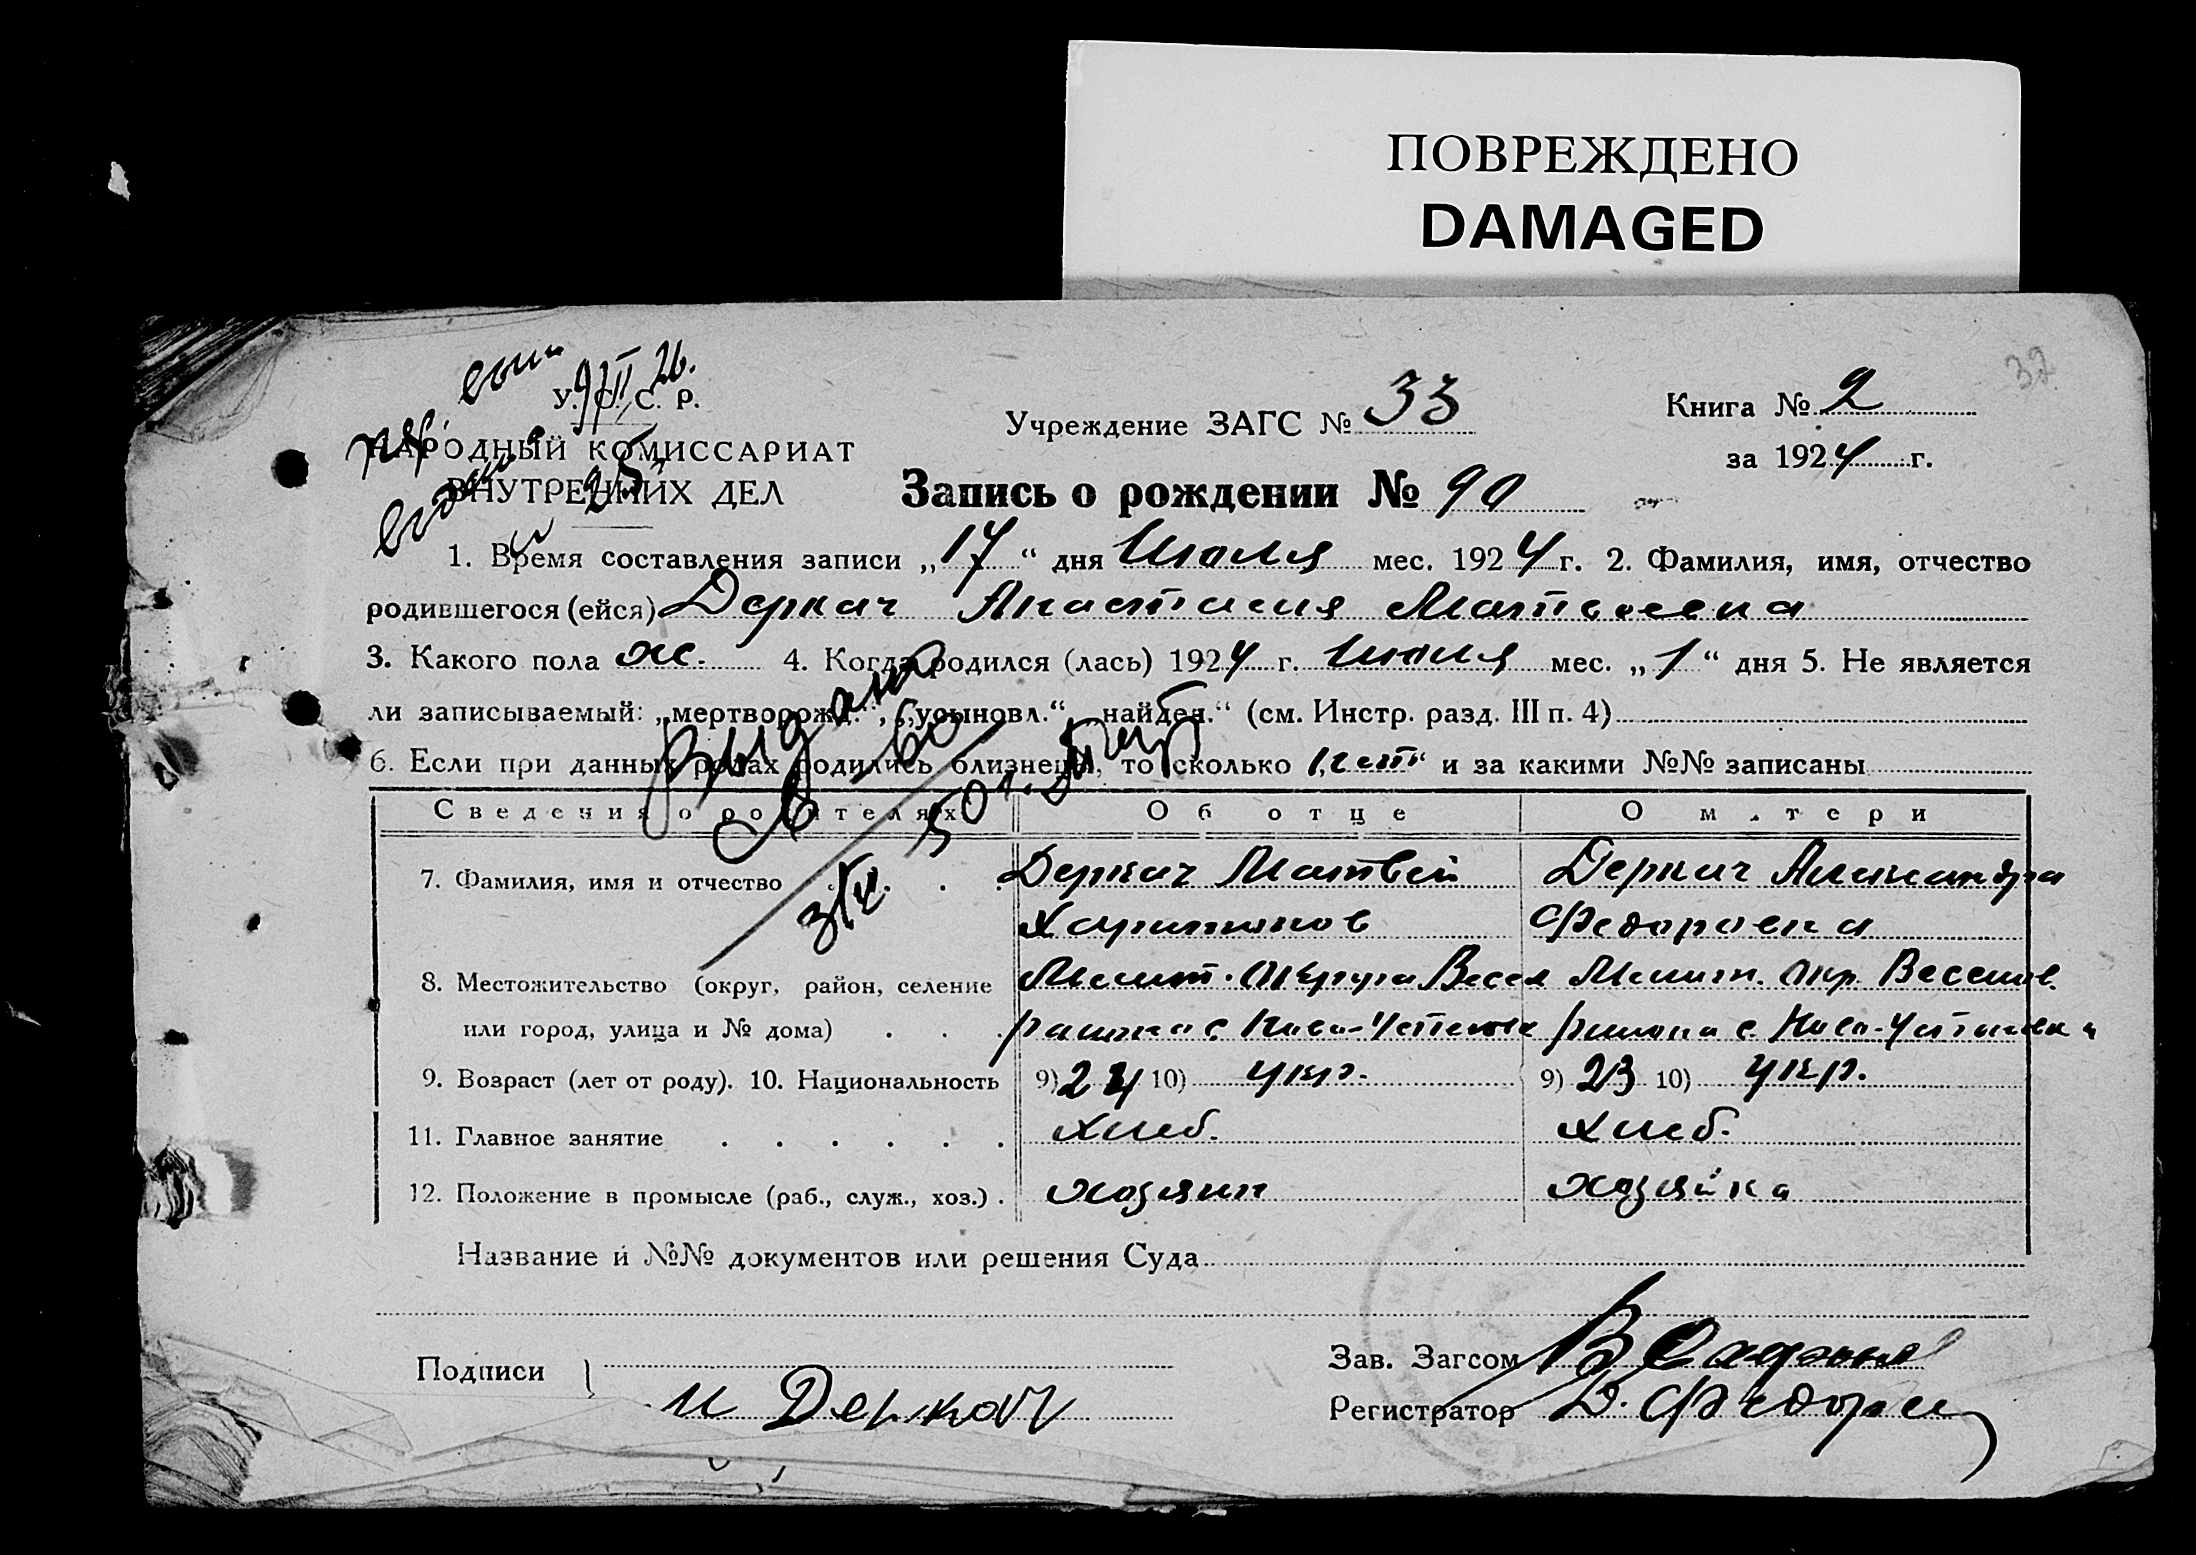 ПОВРЕЖДЕНО
DAMAGED
32
У. С. С. Р.
НАРОДНЫЙ КОМИССАРИАТ
ВНУТРЕННИХ ДЕЛ
Учреждение ЗАГС № 33
Книга № 2
за 1924 г.
Запись о рождении № 90
1. Время составления записи „17“ дня Июля мес. 1924 г. 2. Фамилия, имя, отчество
родившегося (ейся) Деркач Анастасия Матвеевна
3. Какого пола ж. 4. Когда родился (лась) 1924 г. июля мес. „1“ дня 5. Не является
ли записываемый: „мертворожд.“, „усыновл.“ „найден.“ (см. Инстр. разд. III п. 4)
6. Если при данных родах родились близнецы, то сколько „нет“ и за какими №№ записаны
Сведения о родителях Об отце О м.тери
7. Фамилия, имя и отчество . . . Деркач Матвей Деркач Александра
Харитонов Федоровна
8. Местожительство (округ, район, селение Мелит. Округа Весел Мелит. Окр. Веселов.
или город, улица и № дома) . . . района с. Ново-Успеновк района с. Ново-Успеновка
9. Возраст (лет от роду). 10. Национальность 9) 24 10) укр. 9) 23 10) укр.
11. Главное занятие . . . . . . Хлеб. Хлеб.
12. Положение в промысле (раб., служ., хоз.) . хозяин хозяйка
Название и №№ документов или решения Суда
Подписи
М Деркач
Зав. Загсом
Регистратор
Выдано